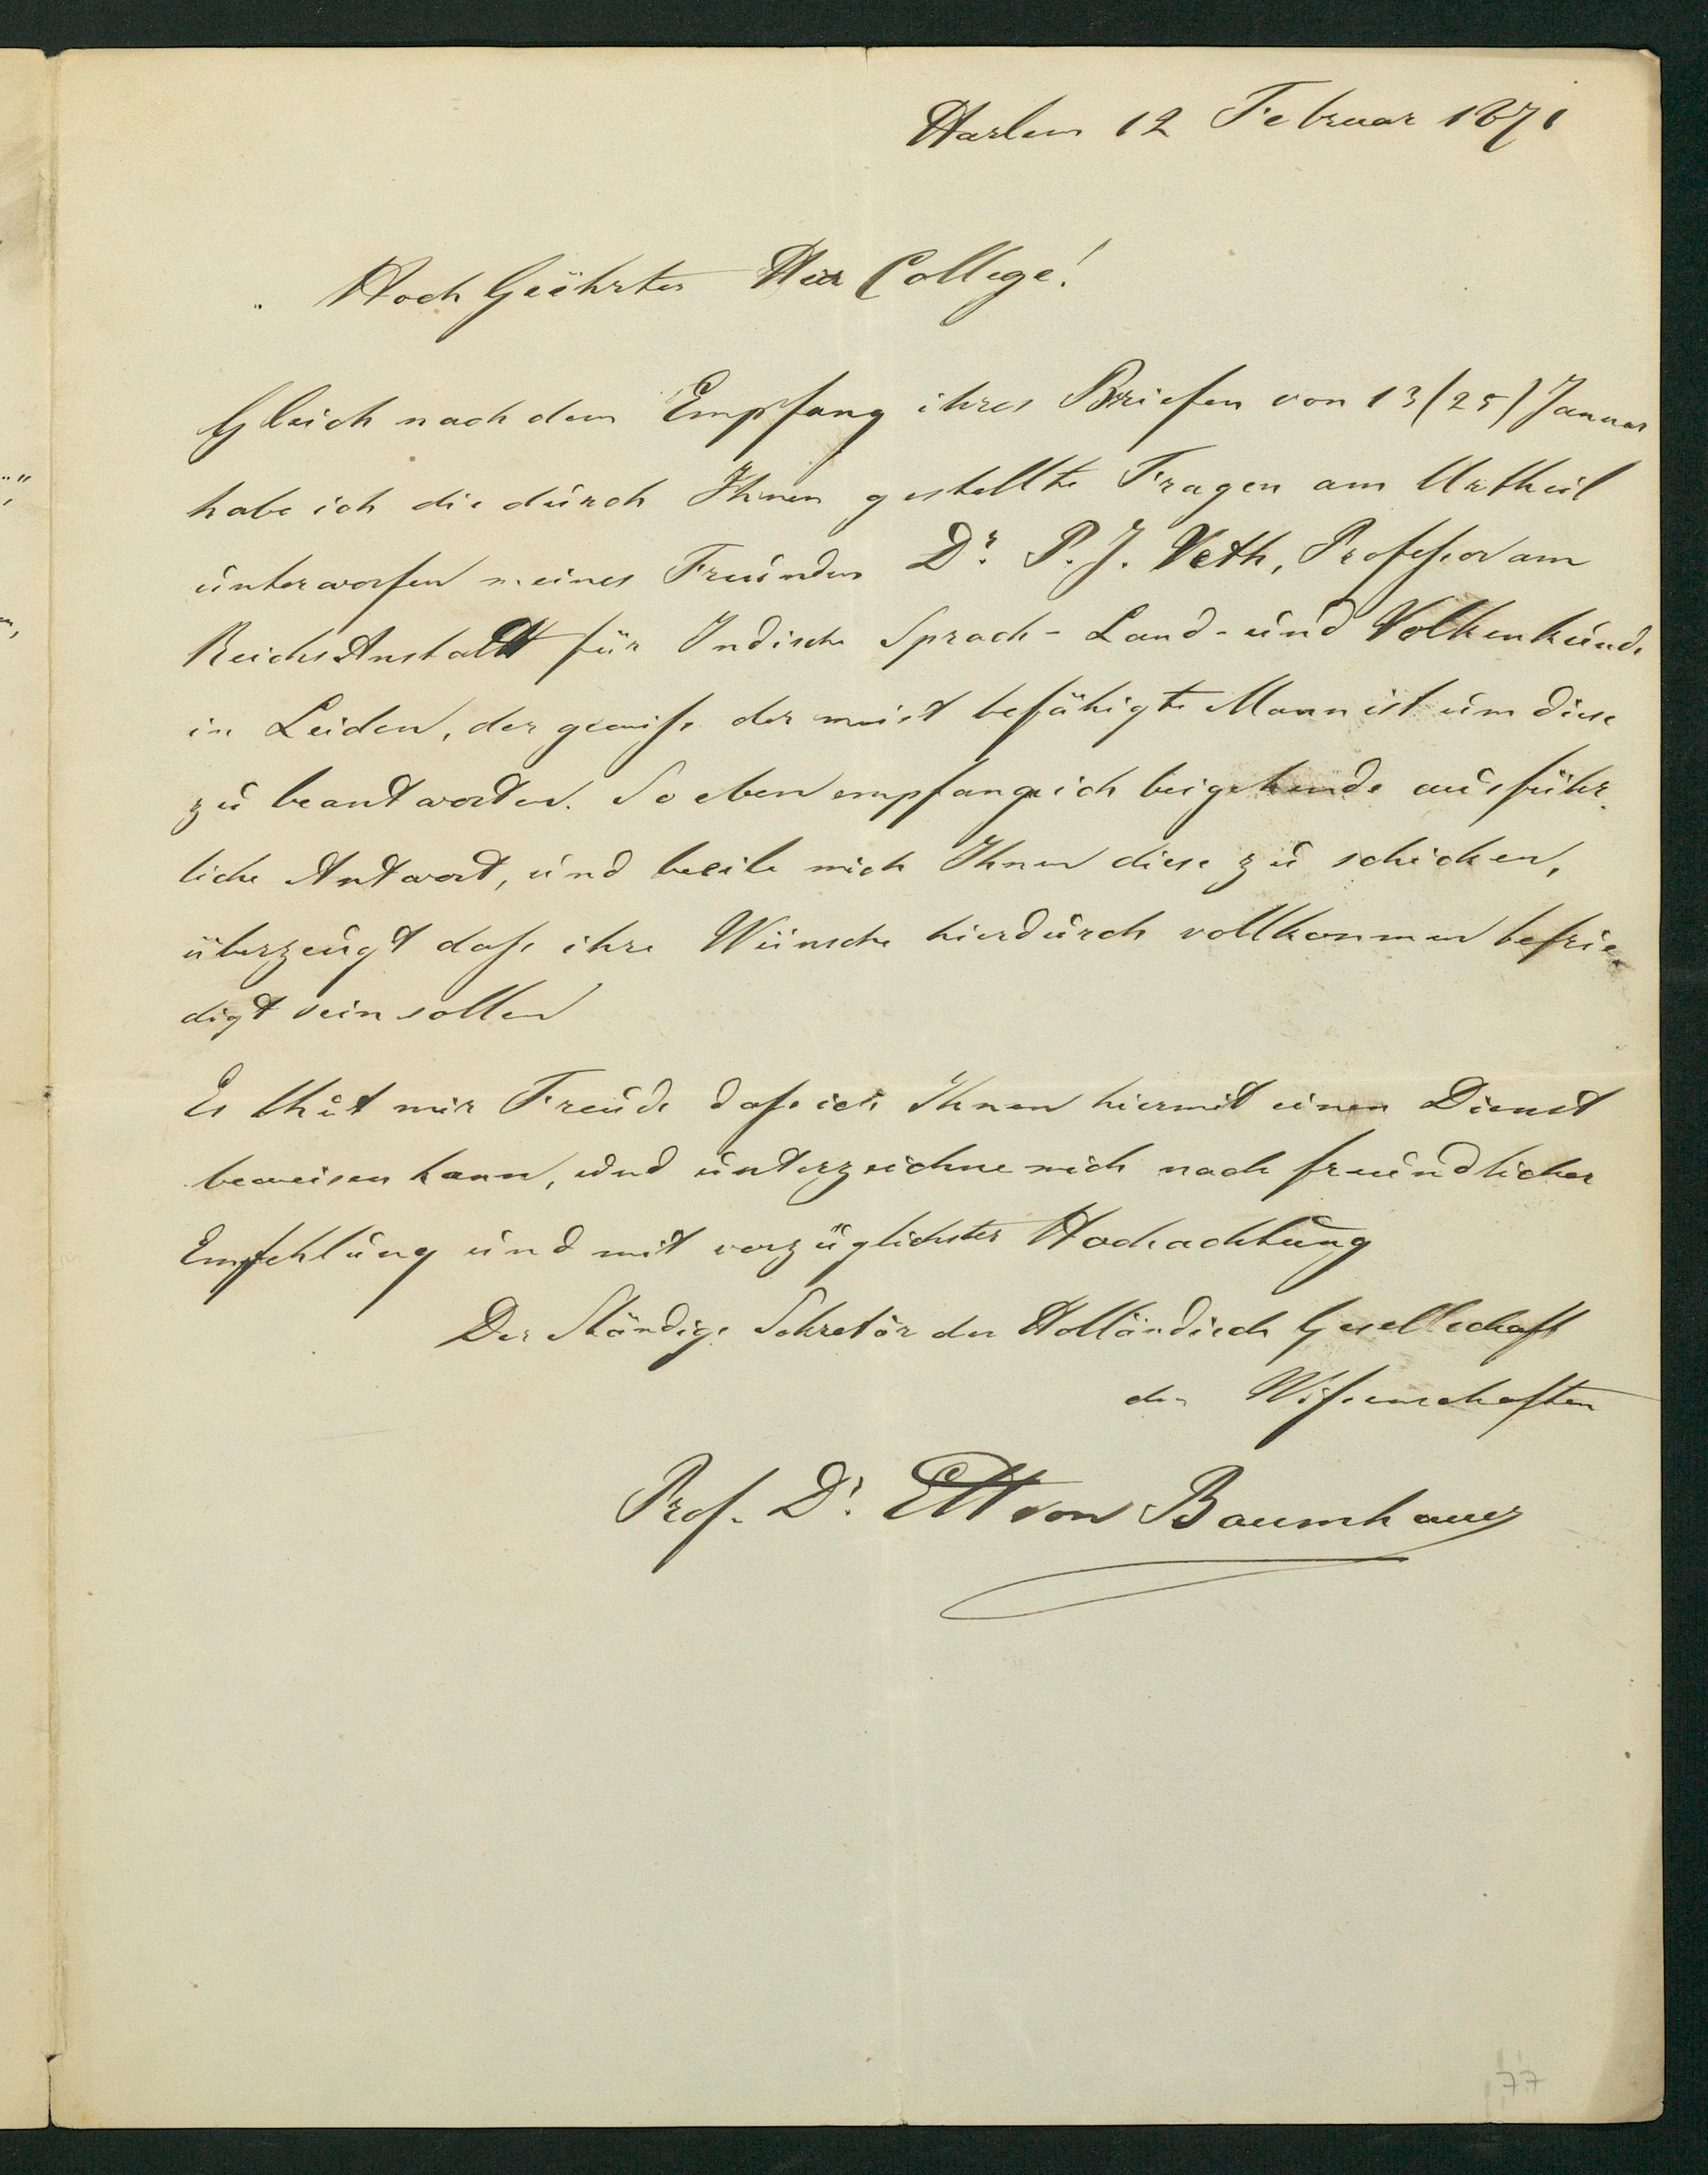 Harlem 12 Februar 1871
Hoch Geöhrter Herr College!
Gleich nach dem Empfang ihres Briefen von 13 (25) Januar
habe ich die durch Ihnen gestellte Fragen am Urtheil
unterworfen meines Freundes Dr. P. J. Veth, Professor am
Reichs Anstalt für Indische Sprach- Land- und Volkenkunde
in Leiden, der gewiss der meist befähigte Mann ist um diese
zu beantworten. So eben empfange ich beigehende ausführ-
liche Antwort, und beeile mich Ihnen diese zu schicken,
überzeugt dass ihre Wünsche hierdurch vollkommen befrie-
digt sein sollen
Es thut mir Freude dass ich Ihnen hiermit einen Dienst
beweisen kann, und unterzeichne mich nach freundlicher
Empfehlung und mit vorzüglichster Hochachtung
Der Ständige Sekretär der Holländisch Gesellschaft
der Wissenschaften
Prof. Dr. EH von Baumhauer
77